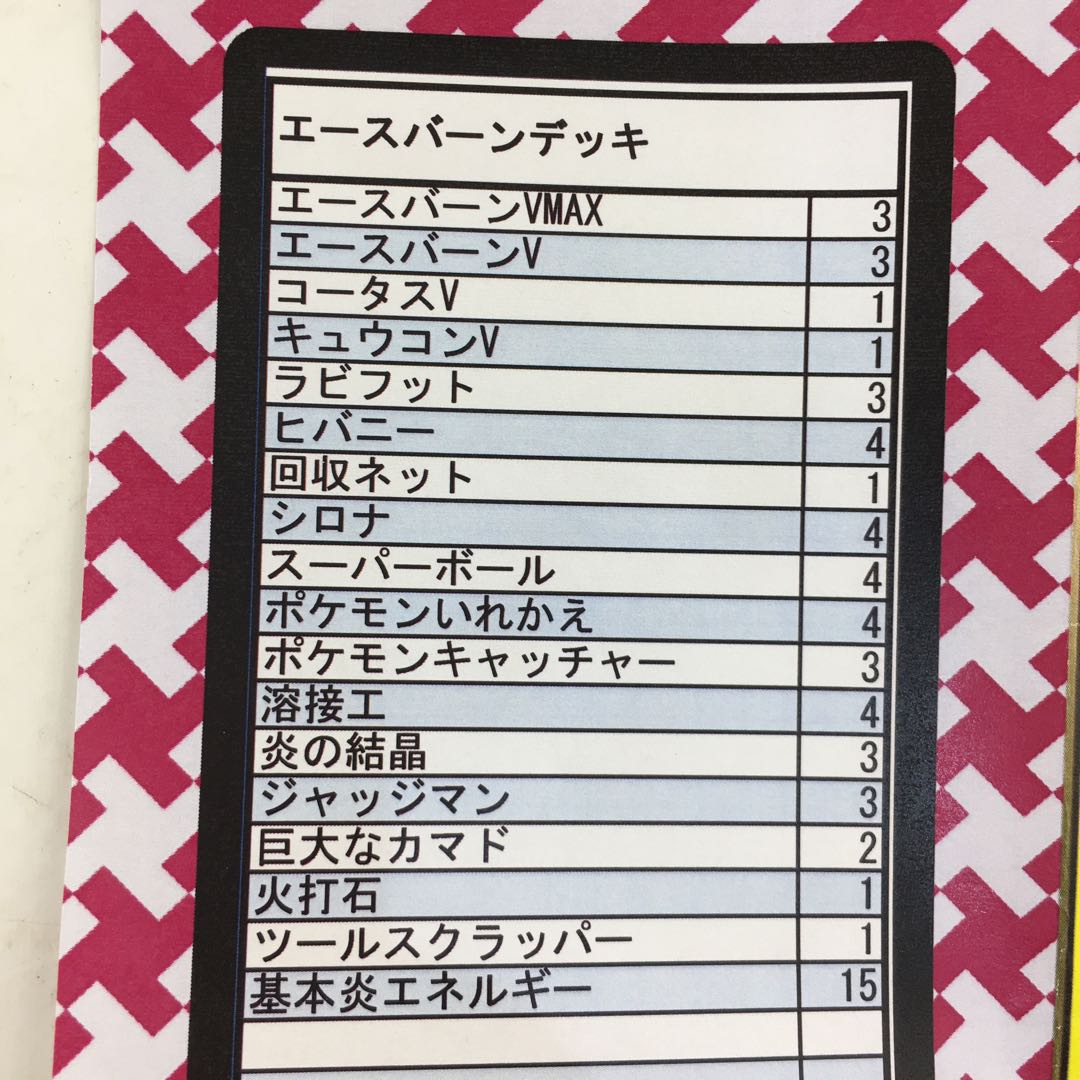 エースバーンデッキ
エースバーンVMAX 3
エースバーンV 3
コータスV 1
キュウコンV 1
ラビフット 3
ヒバニー 4
回収ネット 1
シロナ 4
スーパーボール 4
ポケモンいれかえ 4
ポケモンキャッチャー 3
溶接工 4
炎の結晶 3
ジャッジマン 3
巨大なカマド 2
火打石 1
ツールスクラッパー 1
基本炎エネルギー 15